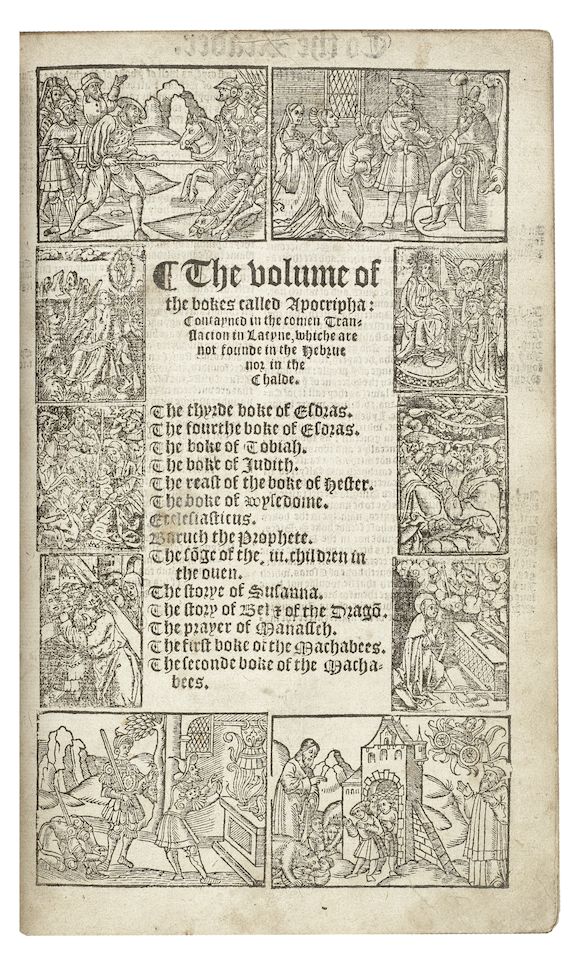 ¶ The volume of
the bokes called Apocripha:
Contayned in the comen Tran-
slacion in Latyne, whiche are
not founde in the Hebrue
nor in the
Chalde.
The thyrde boke of Esdras.
The fourthe boke of Esdras.
The boke of Tobiah.
The boke of Judith.
The reast of the boke of Hester.
The boke of wysedome.
Ecclesiasticus.
Baruch the Prophete.
The sõge of the .iii. children in
the ouen.
The storye of Susanna.
The story of Bel ⁊ of the Dragõ.
The prayer of Manasseh.
The first boke of the Machabees.
The seconde boke of the Macha-
bees.